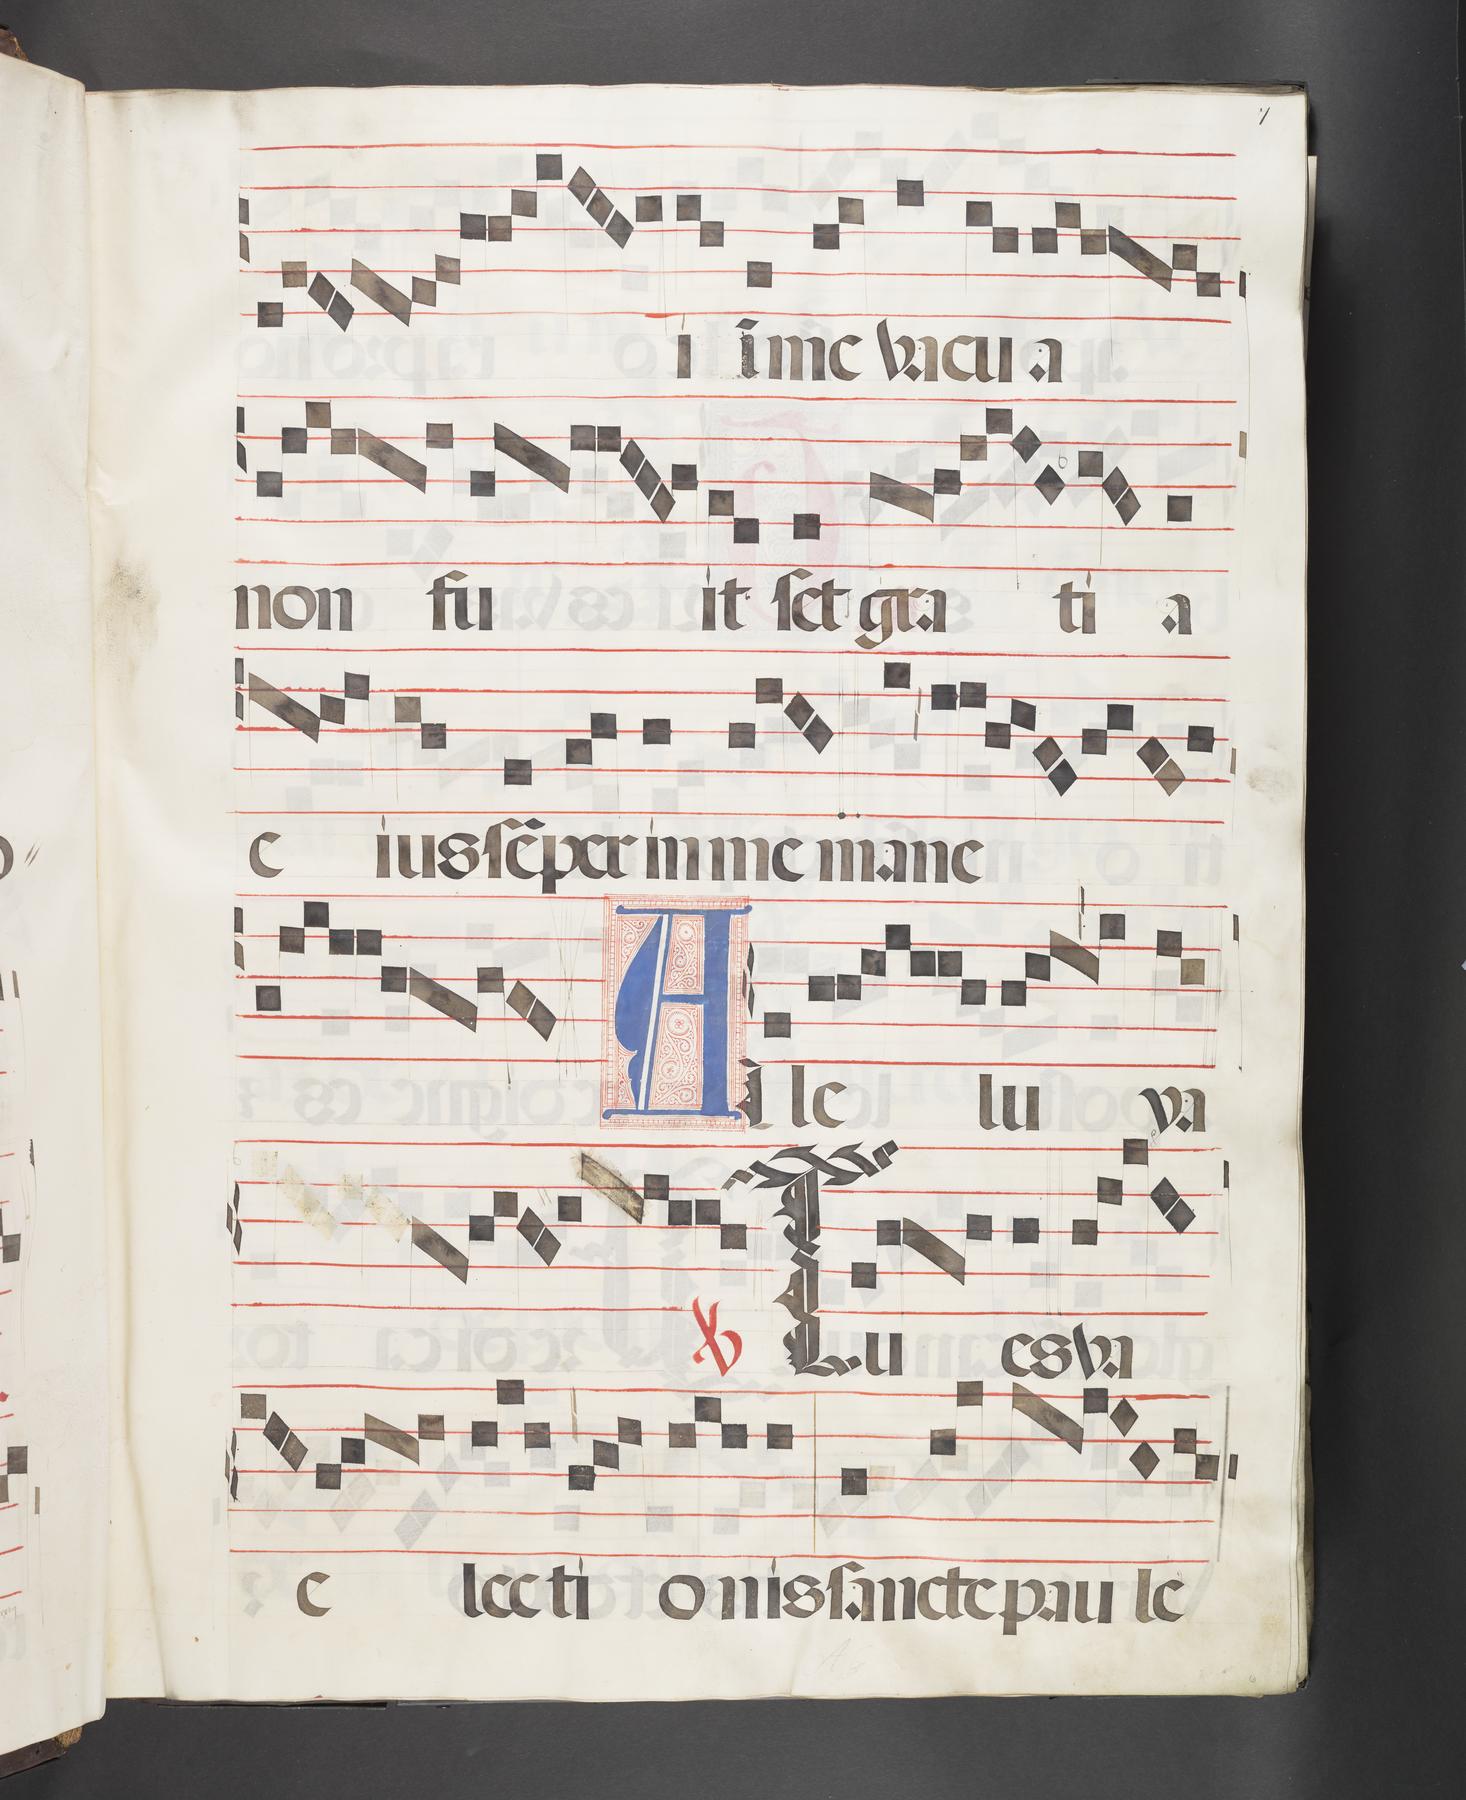 7
i i me vacu a
non fu it set gra ti a
e ius sēper in me mane
A le lu ya
℣ Tu es va
e lec ti o nis sancte pau le